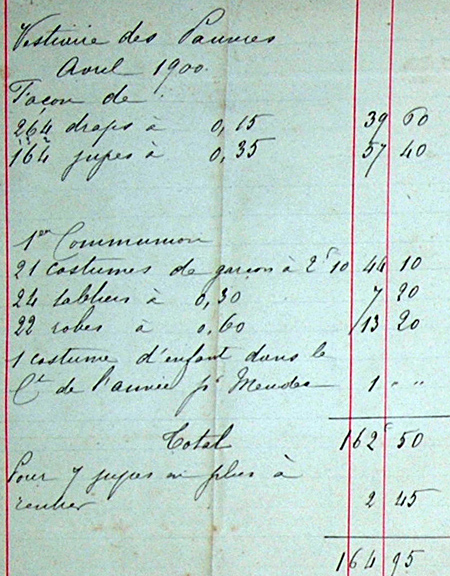 Vestiaire des Pauvres
Avril 1900.
Façon de :
264 draps à 0,15 39 60
164 jupes à 0,35 57 40
1ère Communion
21 costumes de garçon à 2f10 44 10
24 tabliers à 0,30 7 20
22 robes à 0,60 13 20
1 costume d'enfant dans le
Ct de l'année pr Mendes 1 " "
Total 162f 50
Pour 7 jupes en plus à
rentrer 2 45
164 95